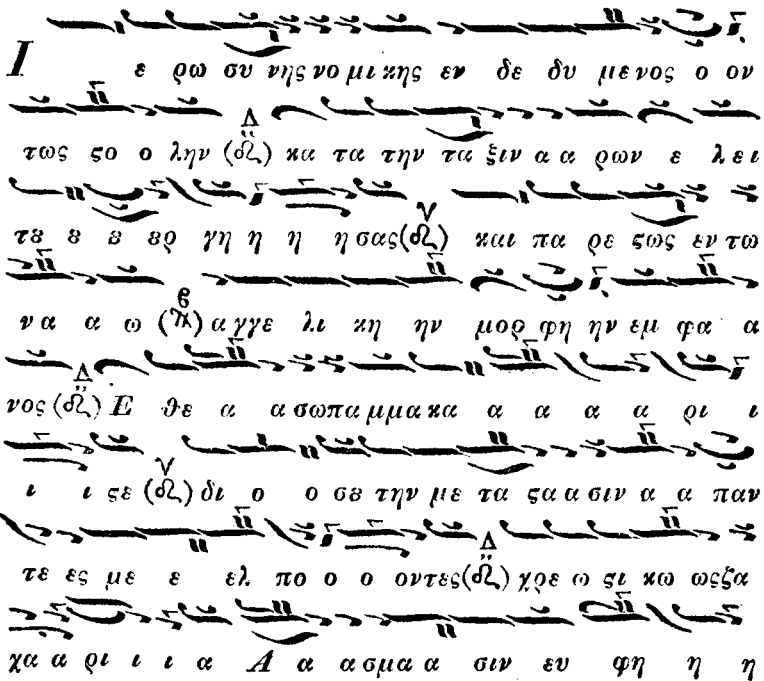 Ι ε ρω συ νης νο μι κης εν δε δυ με νος ο ον
τως ϛο ο λην κα τα την τα ξιν α α ρων ε λει
τȣ ȣ ȣ ȣρ γη η η η σας και πα ρε ϛως εν τω
ν α α ω α γγε λι κη ην μορ φη ην εμ φα α
νος Ε θε α α σω πα μμα κα α α α α ρι ι
ι ι ϛε δι ο ο σȣ την με τα ϛα α σιν α α παν
τε ες με ε ελ πο ο ο οντες χρε ω ϛι κω ως ζα
χα α ρι ι ι α Α α α σμα α σιν ευ φη η η